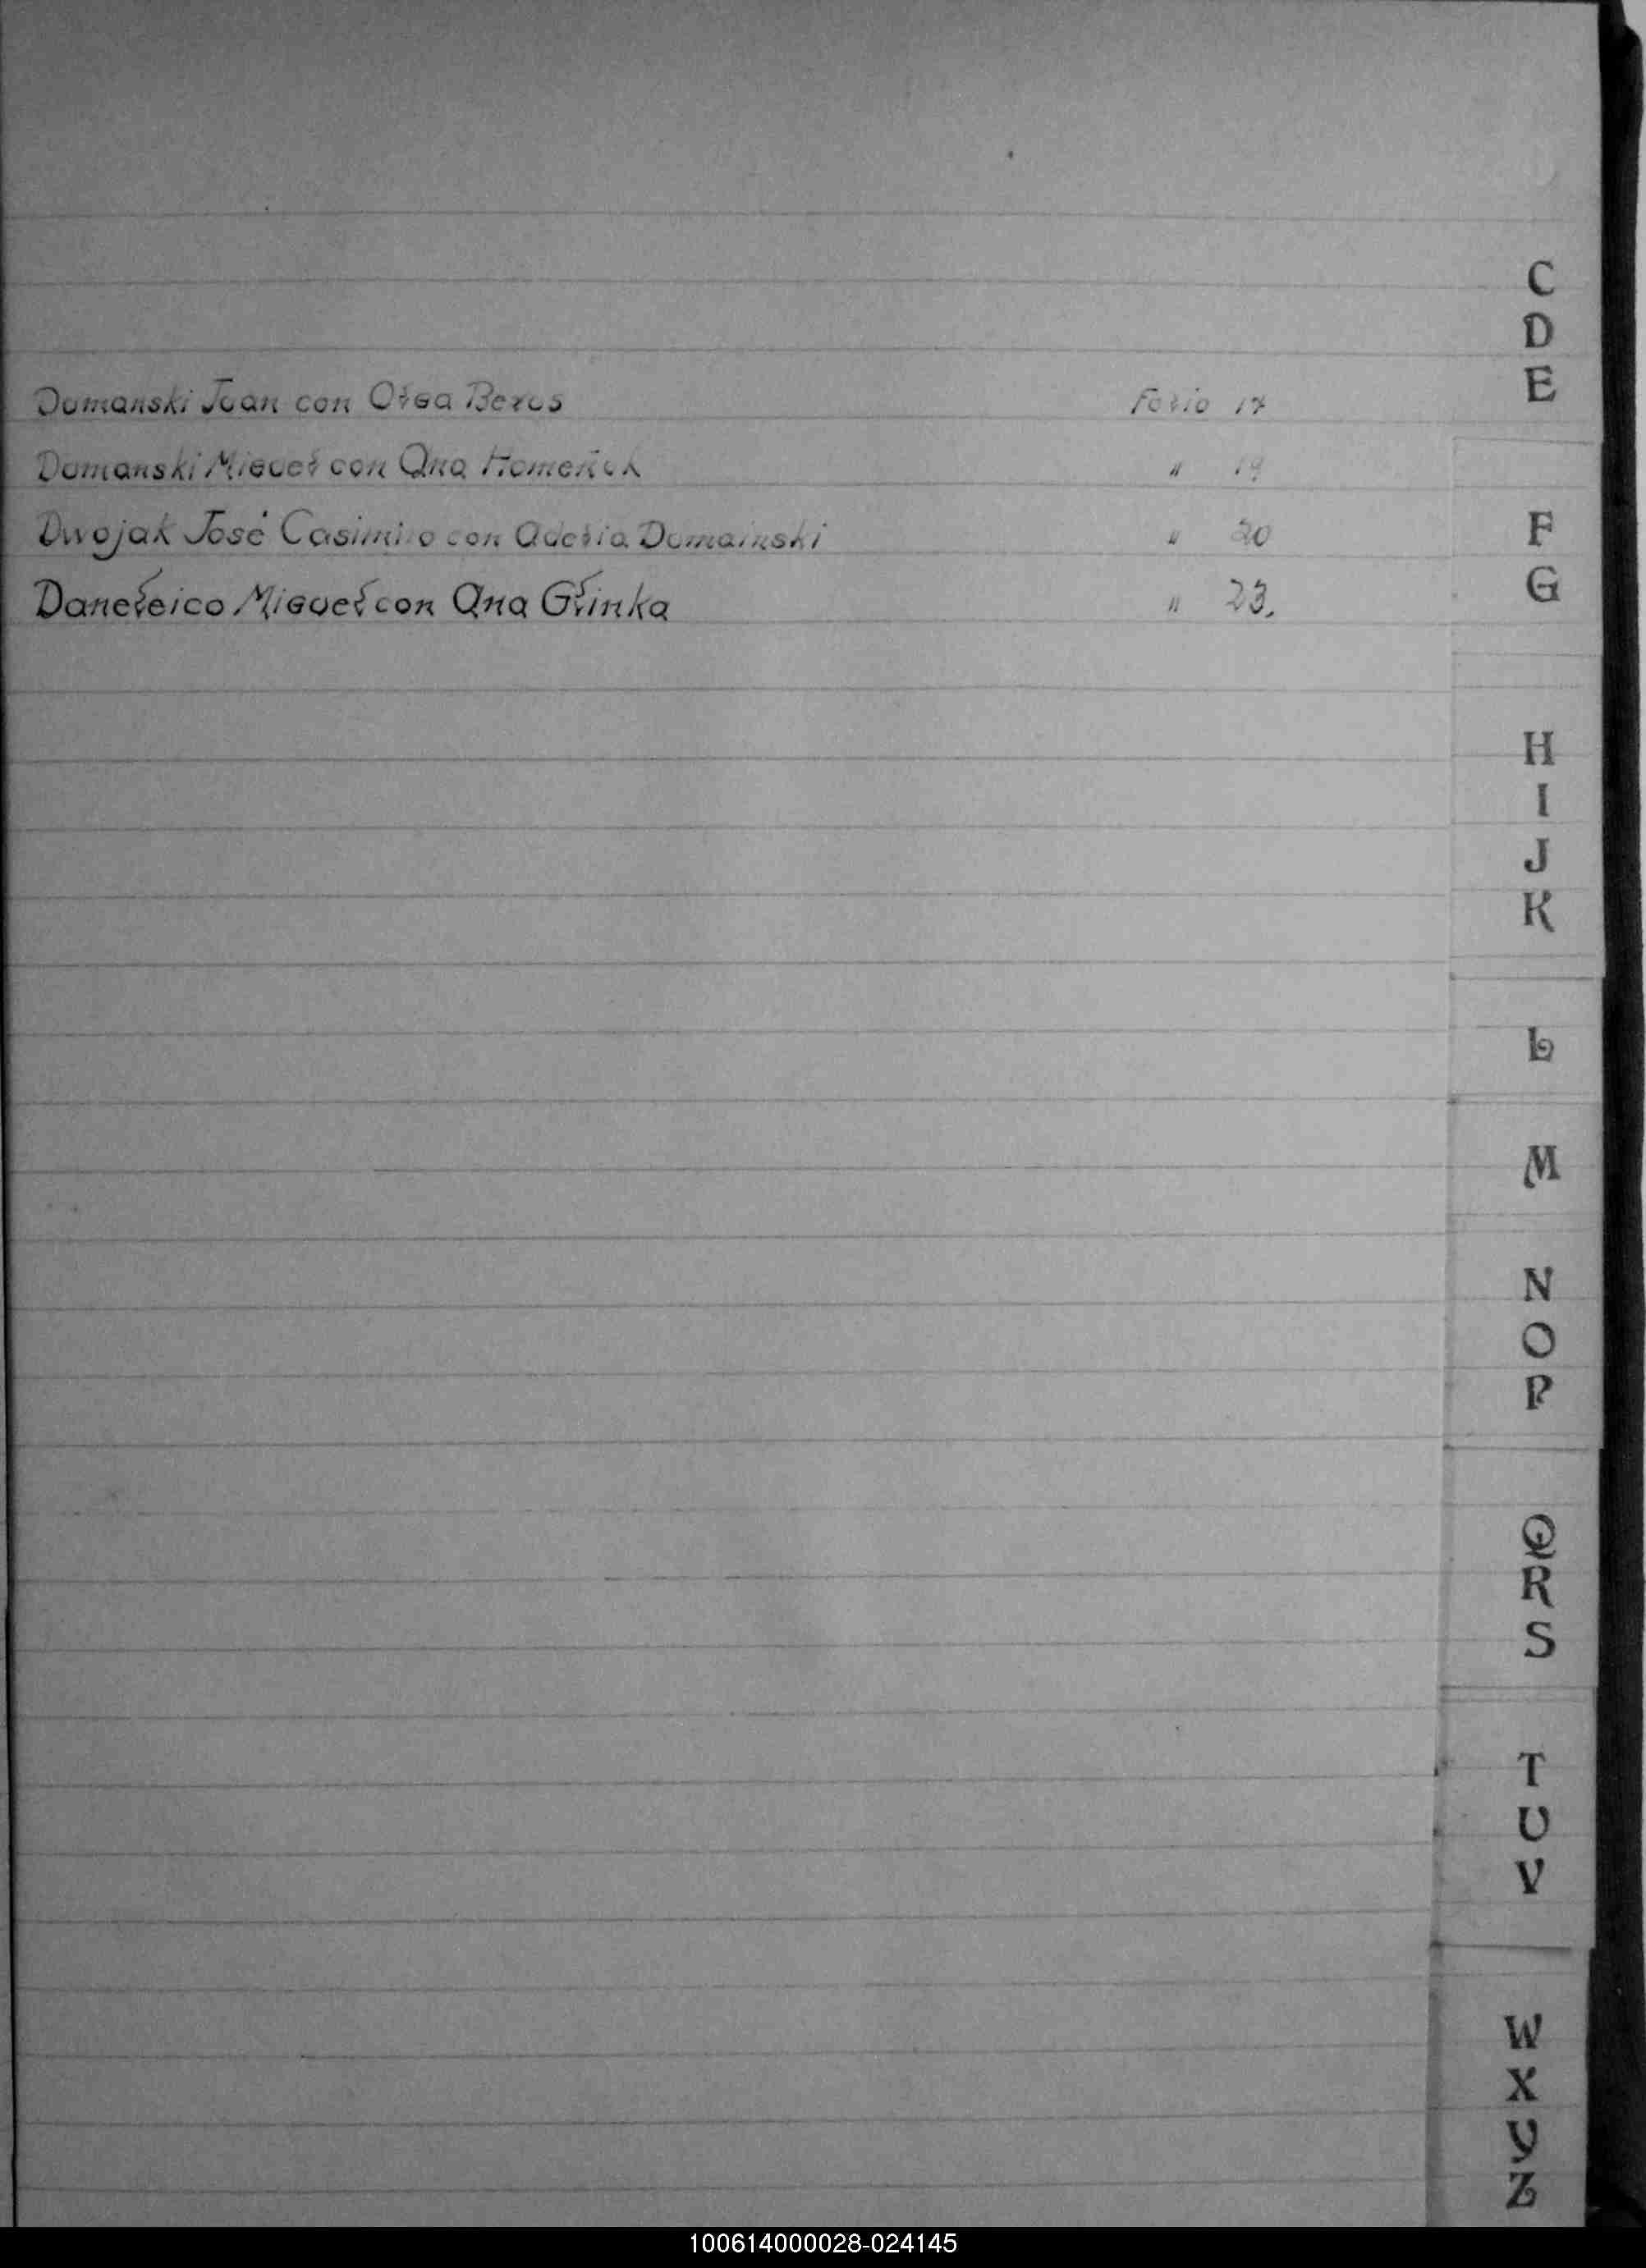 Domanski Juan con Olga Beros Folio 17
Domanski Miguel con Ana Homeñuk " 19
Dwojak José Casimiro con Adelia Domainski " 20
Daneleico Miguel con Ana Glinka " 23.
C
D
E
F
G
H
I
J
K
L
M
N
O
P
Q
R
S
T
U
V
W
X
Y
Z
100614000028-024145